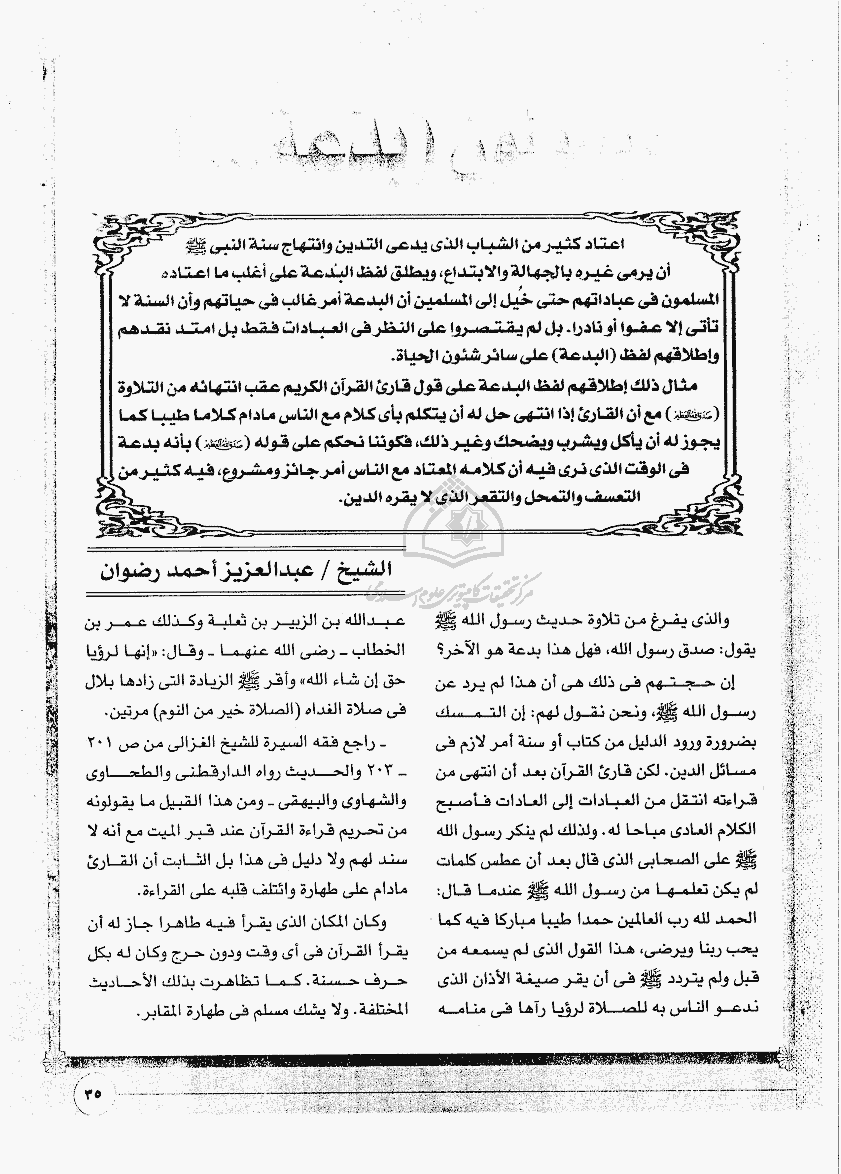 البدعة
اعتاد كثير من الشباب الذى يدعى التدين وانتهاج سنة النبى ﷺ
أن يرمى غيره بالجهالة والابتداع، ويطلق لفظ البدعة على أغلب ما اعتاده
المسلمون فى عباداتهم حتى خُيل إلى المسلمين أن البدعة أمر غالب فى حياتهم وأن السنة لا
تأتى إلا عفوا أو نادرا. بل لم يقتصروا على النظر فى العبادات فقط بل امتد نقدهم
وإطلاقهم لفظ (البدعة) على سائر شئون الحياة.
مثال ذلك إطلاقهم لفظ البدعة على قول قارئ القرآن الكريم عقب انتهائه من التلاوة
( ) مع أن القارئ إذا انتهى حل له أن يتكلم بأى كلام مع الناس مادام كلاما طيبا كما
يجوز له أن يأكل ويشرب ويضحك وغير ذلك، فكوننا نحكم على قوله ( ) بأنه بدعة
فى الوقت الذى نرى فيه أن كلامه المعتاد مع الناس أمر جائز ومشروع، فيه كثير من
التعسف والتمحل والتقعر الذى لا يقره الدين.
الشيخ / عبدالعزيز أحمد رضوان
والذى يفرغ من تلاوة حديث رسول الله ﷺ
يقول: صدق رسول الله، فهل هذا بدعة هو الآخر؟
إن حجتهم فى ذلك هى أن هذا لم يرد عن
رسول الله ﷺ، ونحن نقول لهم: إن التمسك
بضرورة ورود الدليل من كتاب أو سنة أمر لازم فى
مسائل الدين. لكن قارئ القرآن بعد أن انتهى من
قراءته انتقل من العبادات إلى العادات فأصبح
الكلام العادى مباحا له. ولذلك لم ينكر رسول الله
ﷺ على الصحابى الذى قال بعد أن عطس كلمات
لم يكن تعلمها من رسول الله ﷺ عندما قال:
الحمد لله رب العالمين حمدا طيبا مباركا فيه كما
يحب ربنا ويرضى، هذا القول الذى لم يسمعه من
قبل ولم يتردد ﷺ فى أن يقر صيغة الأذان الذى
ندعو الناس به للصلاة لرؤيا رآها فى منامه
عبدالله بن الزبير بن ثعلبة وكذلك عمر بن
الخطاب - رضى الله عنهما - وقال: «إنها لرؤيا
حق إن شاء الله» وأقر ﷺ الزيادة التى زادها بلال
فى صلاة الغداه (الصلاة خير من النوم) مرتين.
- راجع فقه السيرة للشيخ الغزالى من ص ٢٠١
- ٢٠٣ والحديث رواه الدارقطنى والطحاوى
والشهاوى والبيهقى - ومن هذا القبيل ما يقولونه
من تحريم قراءة القرآن عند قبر الميت مع أنه لا
سند لهم ولا دليل فى هذا بل الثابت أن القارئ
مادام على طهارة وائتلف قلبه على القراءة.
وكان المكان الذى يقرأ فيه طاهرا جاز له أن
يقرأ القرآن فى أى وقت ودون حرج وكان له بكل
حرف حسنة. كما تظاهرت بذلك الأحاديث
المختلفة. ولا يشك مسلم فى طهارة المقابر.
٣٥